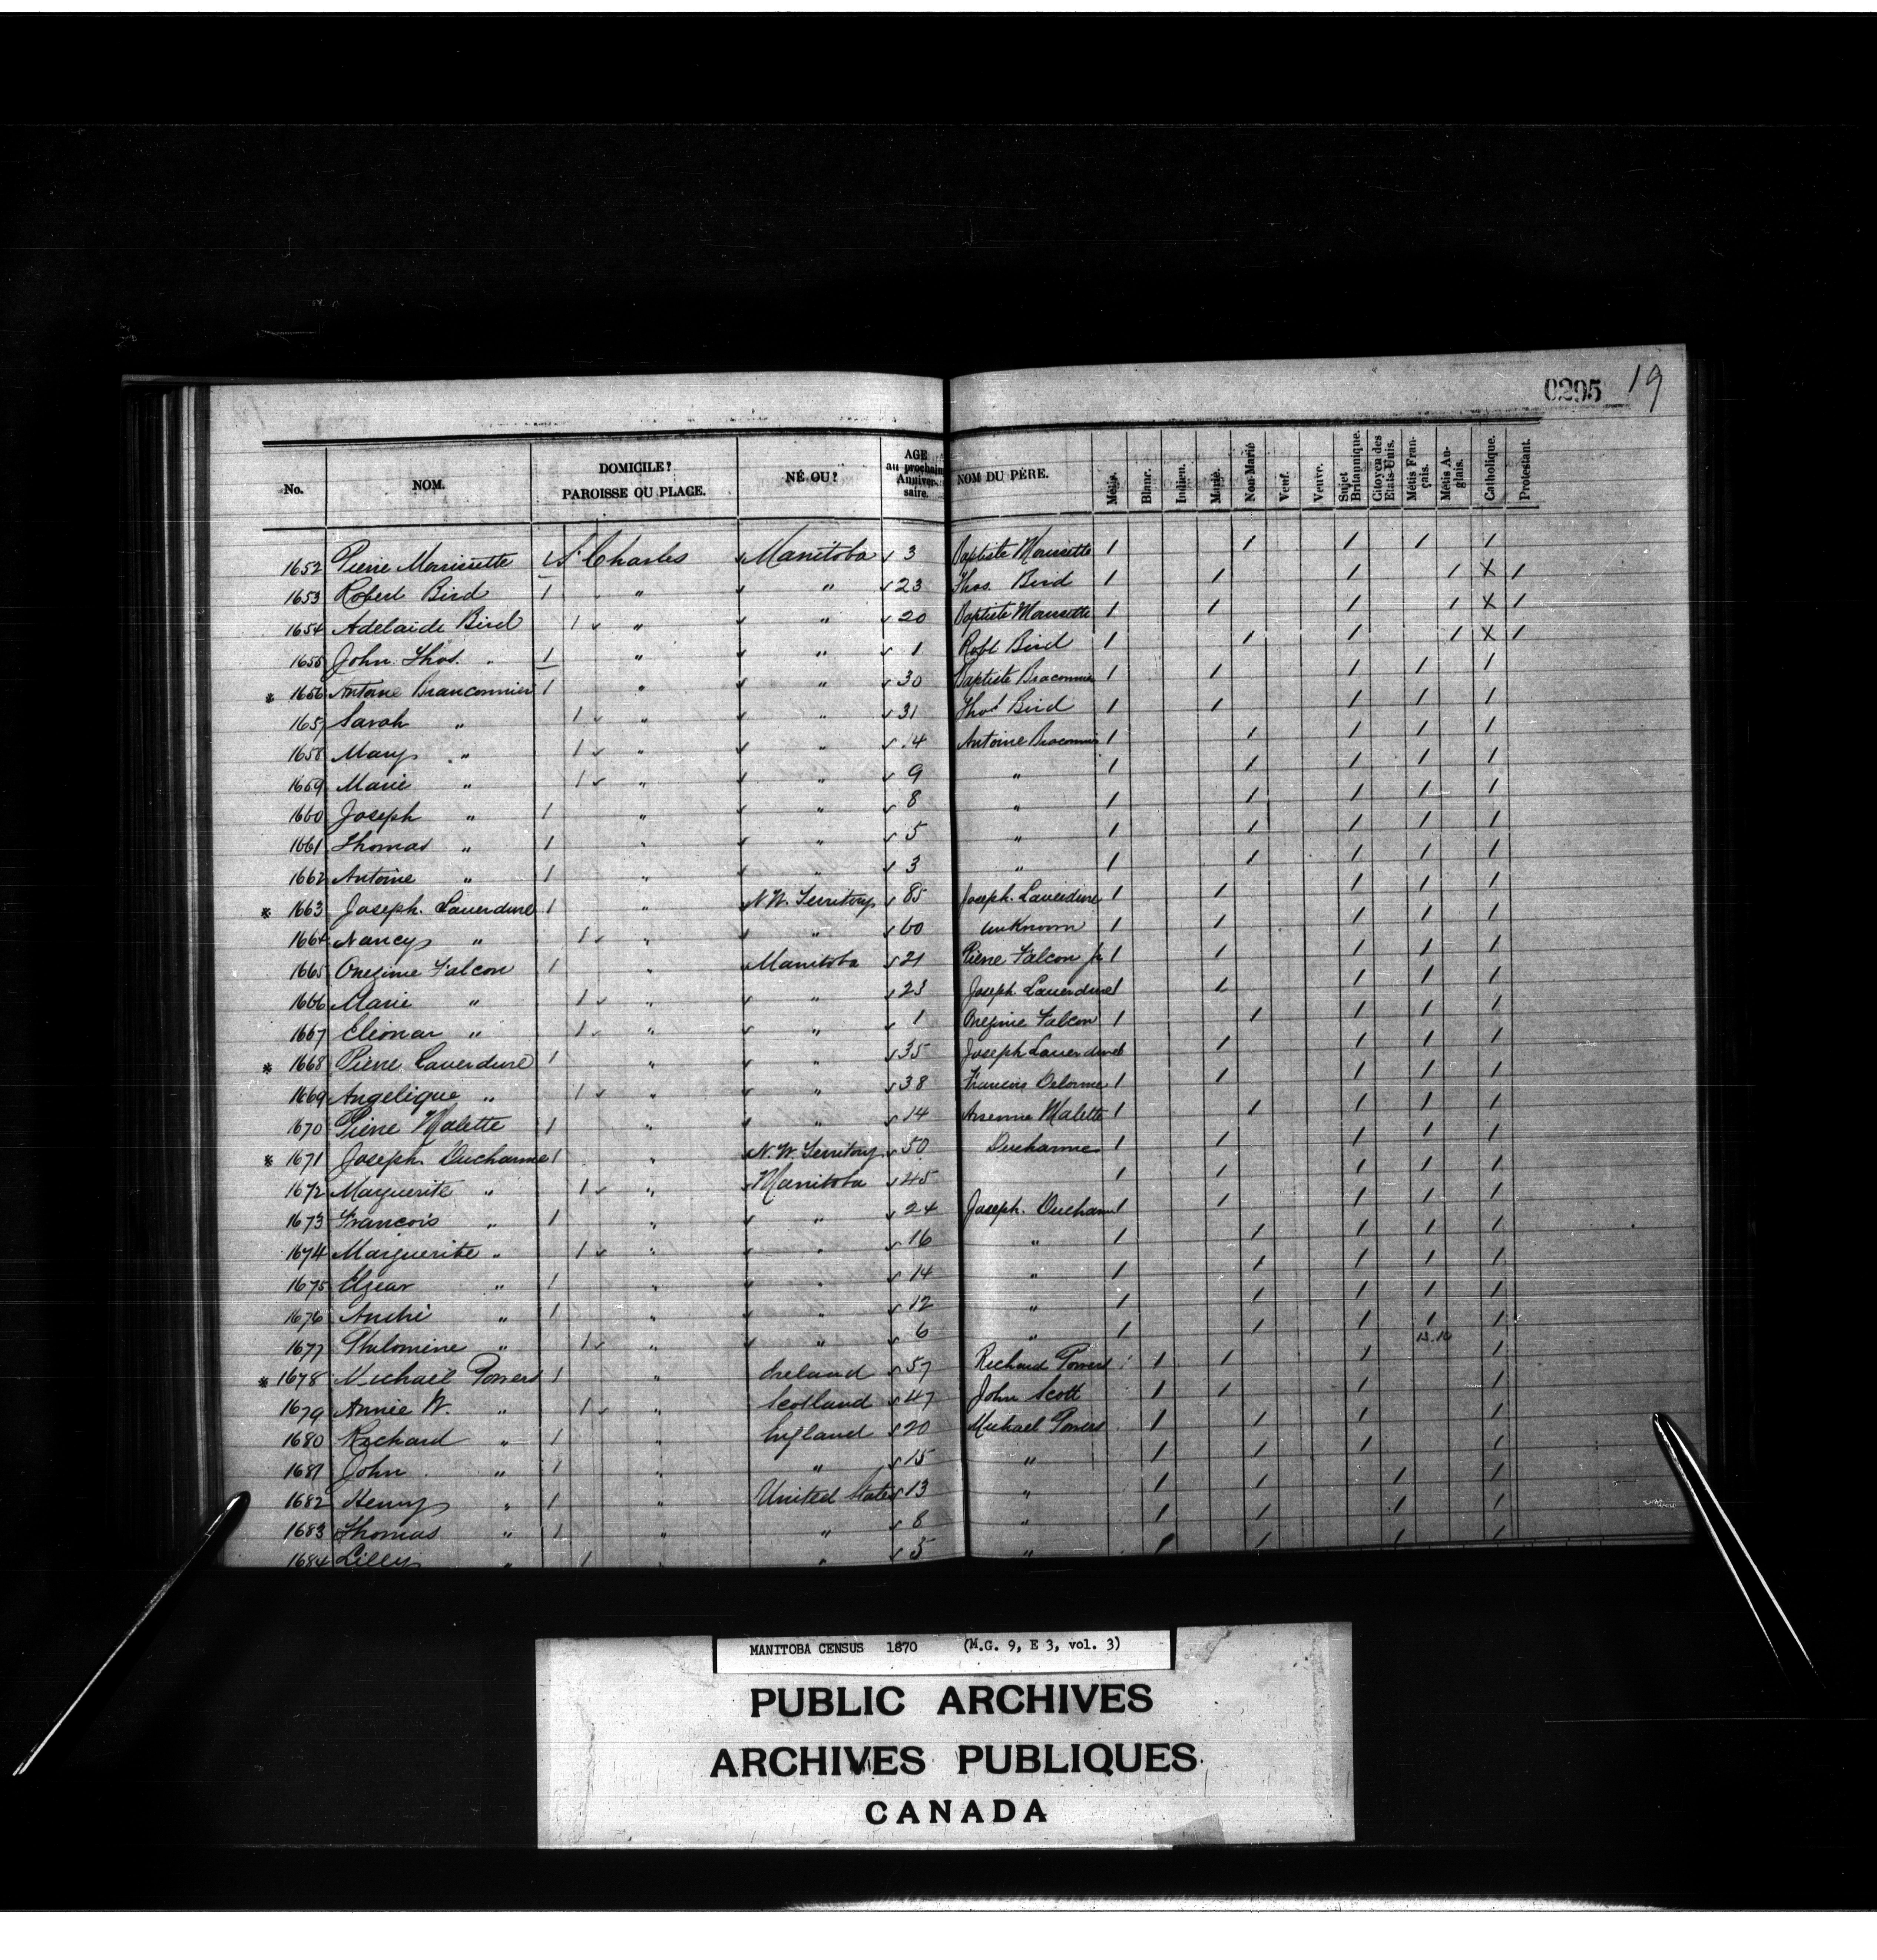 0295 19
No. NOM. DOMICILE? PAROISSE OU PLACE. NÉ OU? AGE au prochain Anniversaire. NOM DU PÈRE. Métis. Blanc. Indien. Marié. Non Marié Veuf. Veuve. Sujet Britannique. Citoyen des Etats-Unis. Métis Français. Métis Anglais. Catholique. Protestant.
1652 Pierre Morrisette 1 St Charles Manitoba 3 Baptiste Morrisette 1 1 1 1 1
1653 Robert Bird 1 " " 23 Thos. Bird 1 1 1 1 X 1
1654 Adelaide Bird 1 " " 20 Baptiste Morrisette 1 1 1 1 X 1
1655 John Thos. " 1 " " 1 Robt Bird 1 1 1 1 X 1
* 1656 Antoine Branconnier 1 " " 30 Baptiste Braconnier 1 1 1 1 1
1657 Sarah " 1 " " 31 Thos Bird 1 1 1 1 1
1658 Mary " 1 " " 14 Antoine Braconnier 1 1 1 1 1
1659 Marie " 1 " " 9 " 1 1 1 1 1
1660 Joseph " 1 " " 8 " 1 1 1 1 1
1661 Thomas " 1 " " 5 " 1 1 1 1 1
1662 Antoine " 1 " " 3 " 1 1 1 1 1
* 1663 Joseph Laverdure 1 " N.W. Territory 85 Joseph Laverdure 1 1 1 1 1
1664 Nancy " 1 " " 60 unknown 1 1 1 1 1
1665 Onezime Falcon 1 " Manitoba 21 Pierre Falcon jr 1 1 1 1 1
1666 Marie " 1 " " 23 Joseph Laverdure 1 1 1 1 1
1667 Elionar " 1 " " 1 Onezime Falcon 1 1 1 1 1
* 1668 Pierre Laverdure 1 " " 35 Joseph Laverdure 1 1 1 1 1
1669 Angelique " 1 " " 38 Francois Delorme 1 1 1 1 1
1670 Pierre Malette 1 " " 14 Arsenne Malette 1 1 1 1 1
* 1671 Joseph Ducharme 1 " N.W. Territory 50 Ducharme 1 1 1 1 1
1672 Marguerite " 1 " Manitoba 45 1 1 1 1 1
1673 Francois " 1 " " 24 Joseph Ducharme 1 1 1 1 1
1674 Marguerite " 1 " " 16 " 1 1 1 1 1
1675 Elzear " 1 " " 14 " 1 1 1 1 1
1676 André " 1 " " 12 " 1 1 1 1 1
1677 Philomene " 1 " " 6 " 1 1 1 1 1
* 1678 Michael Powers 1 " Ireland 57 Richard Powers 1 1 1 1
1679 Annie W. " 1 " Scotland 47 John Scott 1 1 1 1
1680 Richard " 1 " England 20 Michael Powers 1 1 1 1
1681 John " 1 " " 15 " 1 1 1 1
1682 Henry " 1 " United States 13 " 1 1 1 1
1683 Thomas " 1 " " 8 " 1 1 1 1
1684 Lilly " 1 " " 5 " 1 1 1 1
MANITOBA CENSUS 1870 (M.G. 9, E 3, vol. 3)
PUBLIC ARCHIVES
ARCHIVES PUBLIQUES
CANADA